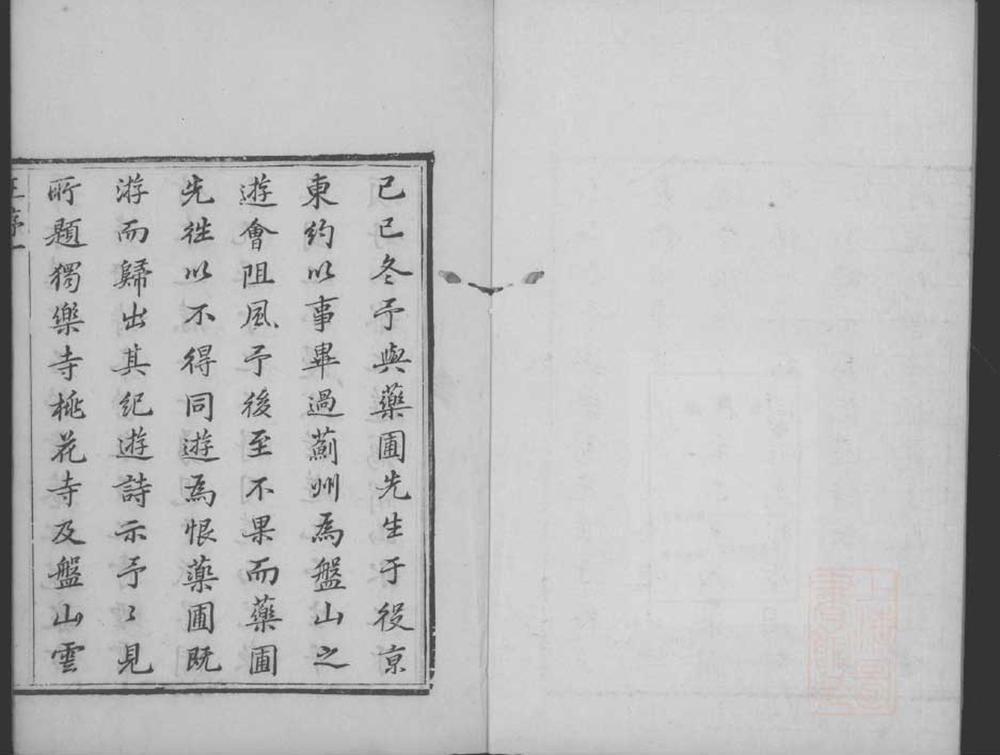 己巳冬予與藥圃先生于役京
東約以事畢過薊州為盤山之
遊會阻風予後至不果而藥圃
先往以不得同遊為恨藥圃既
游而歸出其紀遊詩示予〻見
所題獨樂寺桃花寺及盤山雲
王序一